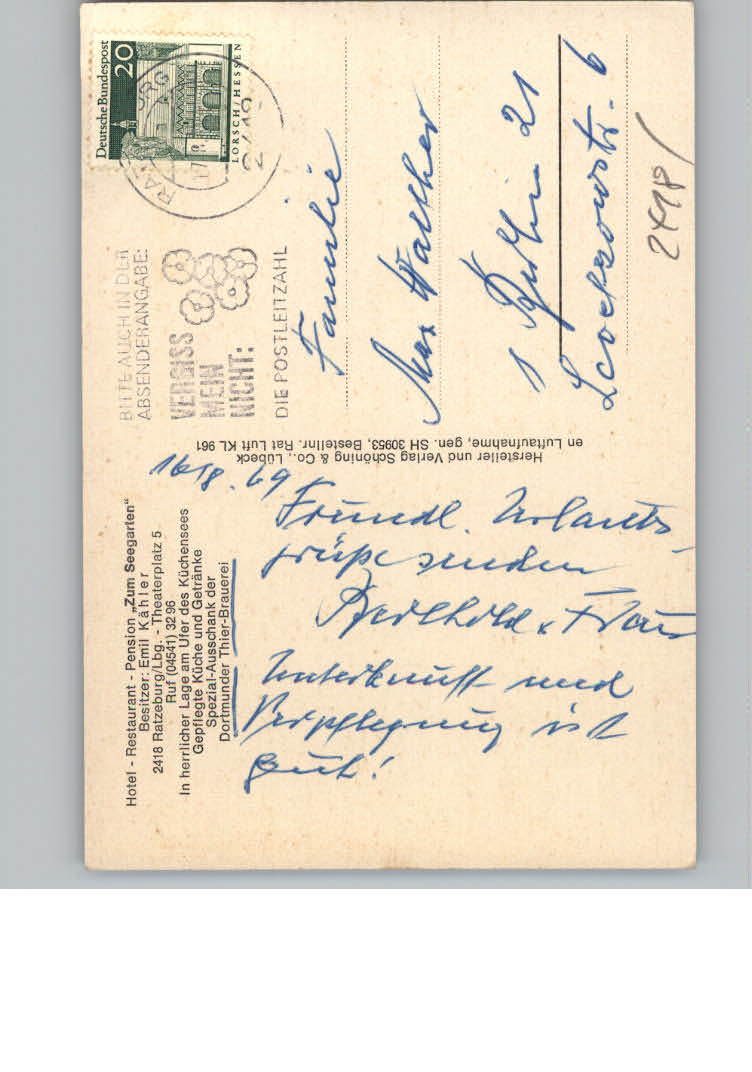 Hotel - Restaurant - Pension „Zum Seegarten"
Besitzer: Emil Kähler
2418 Ratzeburg/Lbg. - Theaterplatz 5
Ruf (04541) 32 96
In herrlicher Lage am Ufer des Küchensees
Gepflegte Küche und Getränke
Spezial-Ausschank der
Dortmunder Thier-Brauerei
16/8. 69
Freundl. Urlaubs-
grüße senden
Berthold u. Frau
Unterkunft und
Verpflegung ist
gut!
Hersteller und Verlag Schöning & Co., Lübeck
en Luftaufnahme, gen. SH 30953, Bestellnr. Rat Luft KL 961
BITTE AUCH IN DER
ABSENDERANGABE:
VERGISS
MEIN
NICHT:
DIE POSTLEITZAHL
Deutsche Bundespost
20
LORSCH/HESSEN
2418
Familie
Max Walther
1 Berlin 21
6
2418/